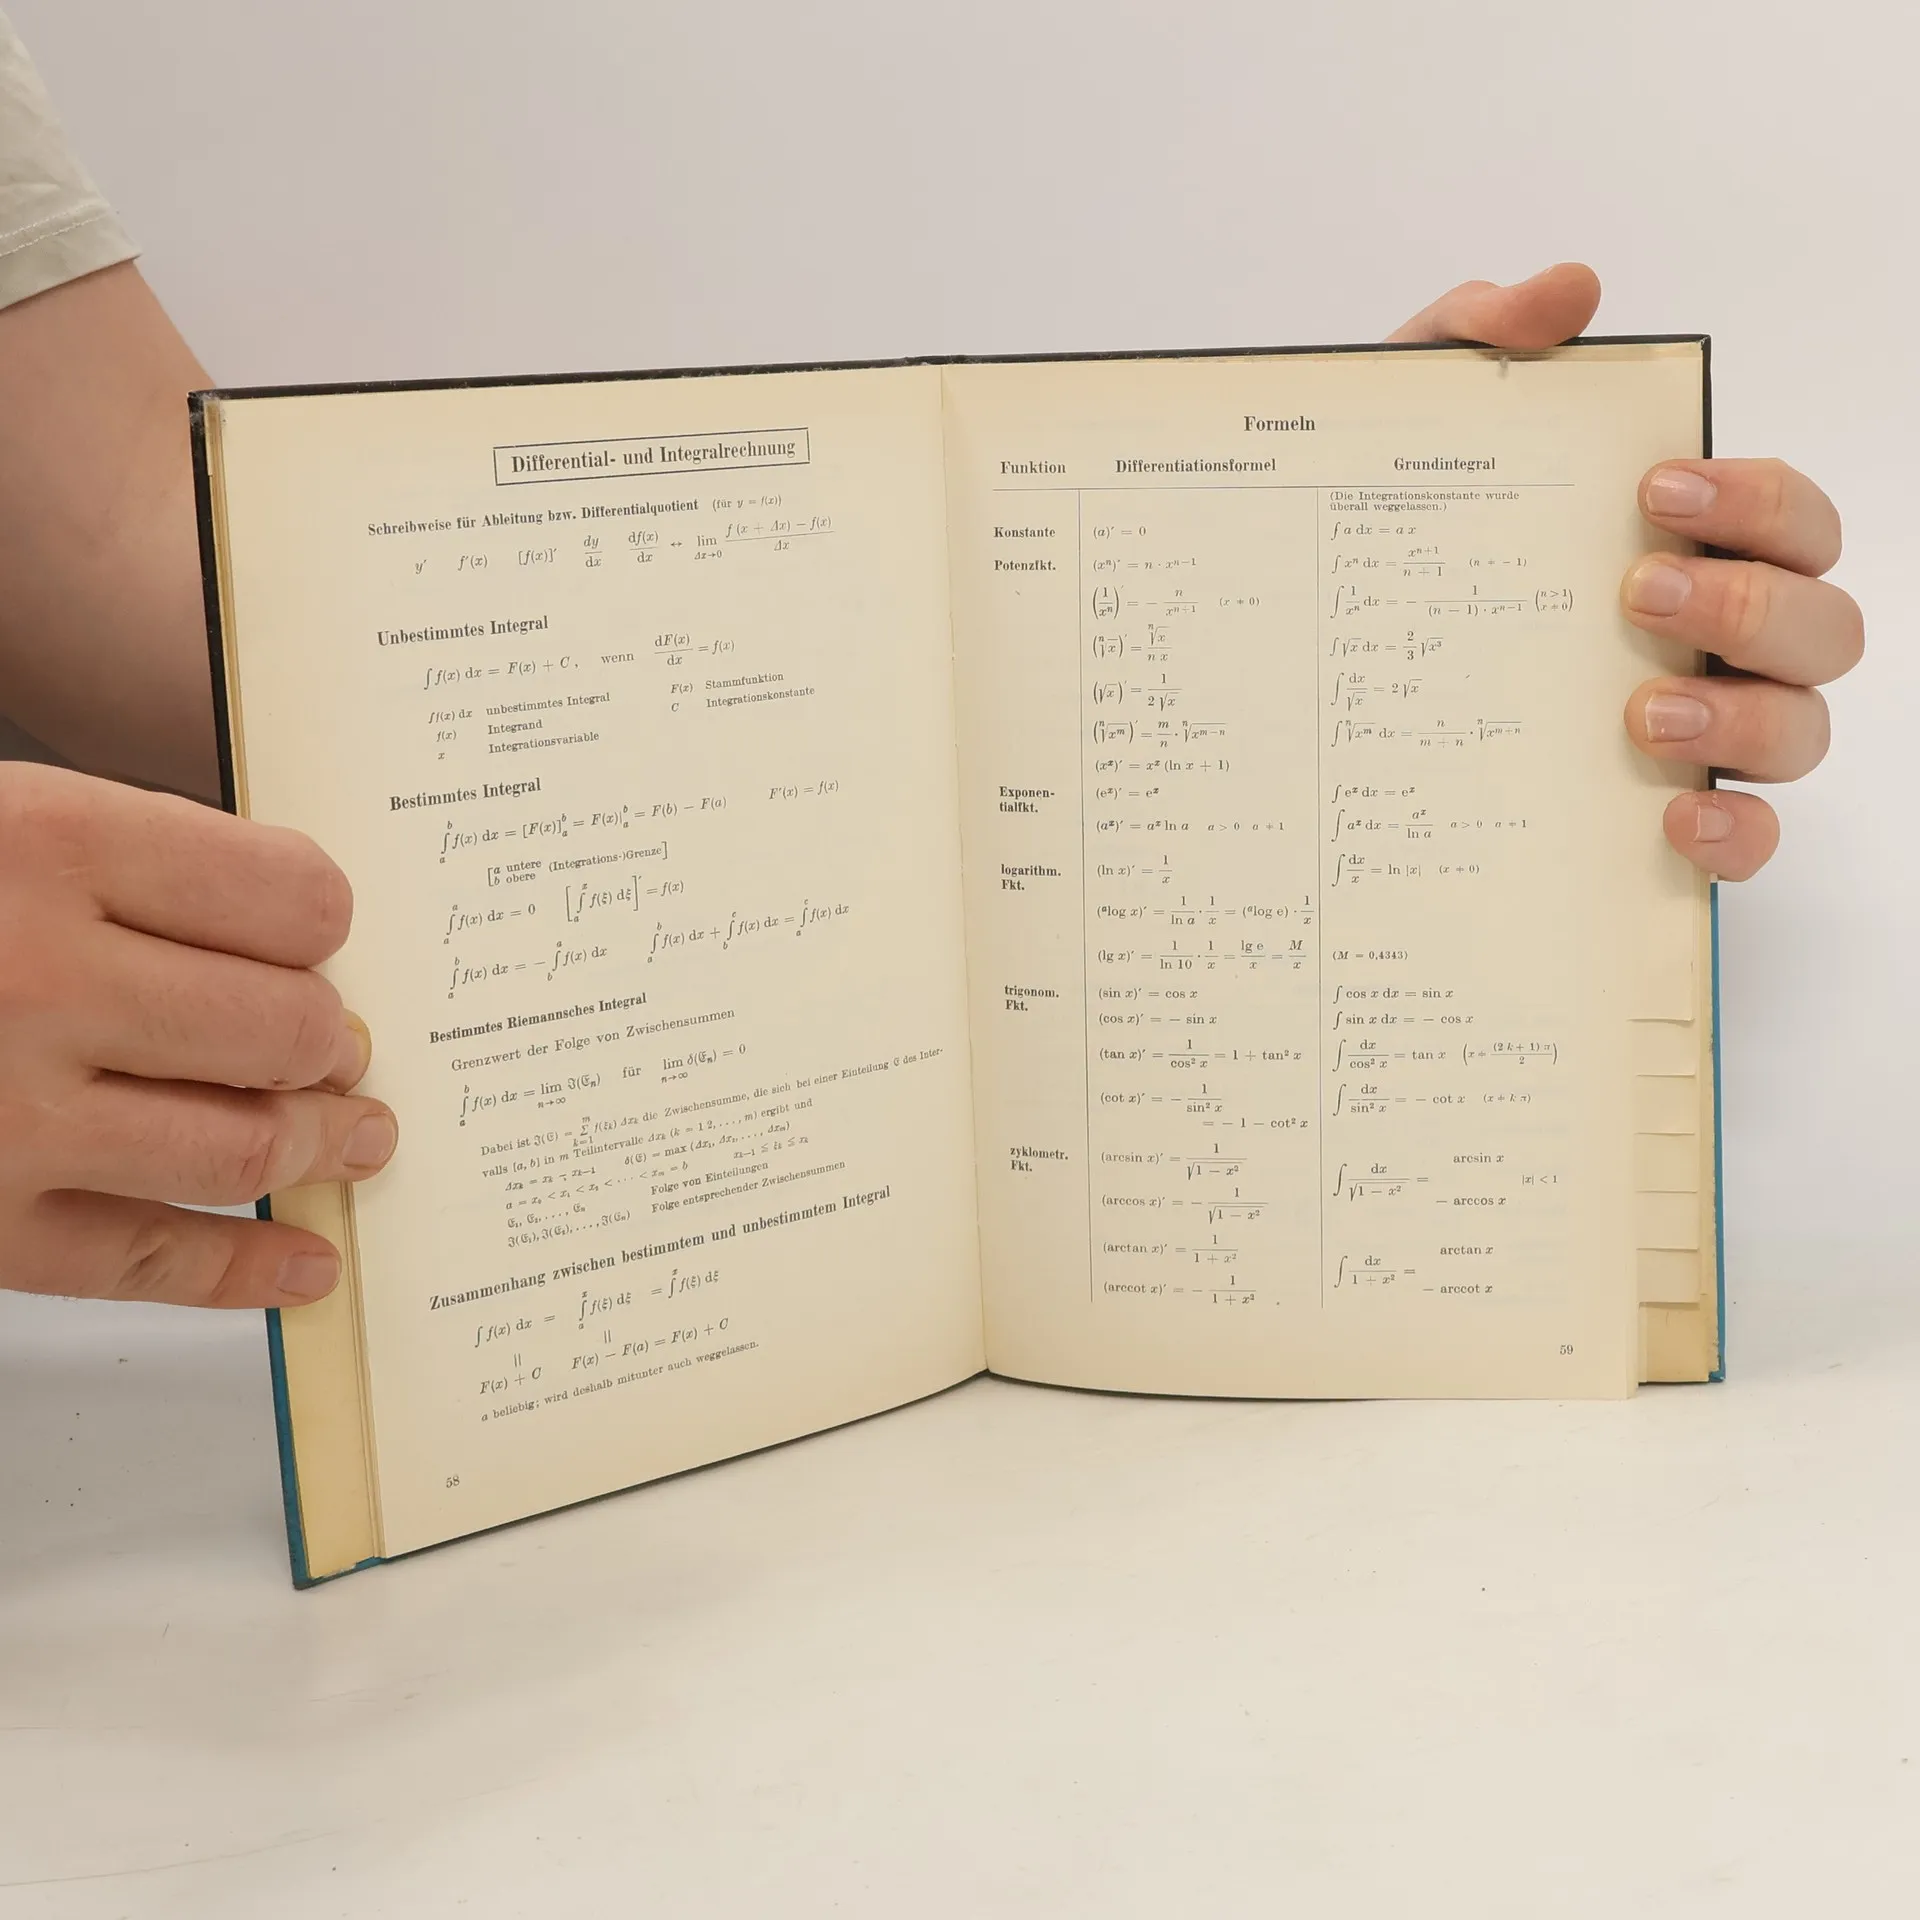 Differential- und Integralrechnung
Schreibweise für Ableitung bzw. Differentialquotient (für y = f(x))
y′ f′(x) [f(x)]′ dy/dx df(x)/dx ↔ lim Δx→0 (f (x + Δx) − f(x))/Δx
Unbestimmtes Integral
∫ f(x) dx = F(x) + C, wenn dF(x)/dx = f(x)
∫f(x) dx unbestimmtes Integral F(x) Stammfunktion
f(x) Integrand C Integrationskonstante
x Integrationsvariable
Bestimmtes Integral
∫ₐᵇ f(x) dx = [F(x)]ₐᵇ = F(x)|ₐᵇ = F(b) − F(a) F′(x) = f(x)
[a untere (Integrations-)Grenze]
b obere
∫ₐᵃ f(x) dx = 0 [∫ₐˣ f(ξ) dξ]′ = f(x)
∫ₐᵇ f(x) dx = − ∫_b^a f(x) dx ∫ₐᵇ f(x) dx + ∫_b^c f(x) dx = ∫ₐᶜ f(x) dx
Bestimmtes Riemannsches Integral
Grenzwert der Folge von Zwischensummen
∫ₐᵇ f(x) dx = lim n→∞ ℑ(𝔈ₙ) für lim n→∞ δ(𝔈ₙ) = 0
Dabei ist ℑ(𝔈) = Σ k=1 m f(ξₖ) Δxₖ die Zwischensumme, die sich bei einer Einteilung 𝔈 des Inter-
valls [a, b] in m Teilintervalle Δxₖ (k = 1 2, . . . , m) ergibt und
Δxₖ = xₖ − xₖ₋₁ δ(𝔈) = max (Δx₁, Δx₂, . . . , Δxₘ)
a = x₀ < x₁ < x₂ < · · · < xₘ = b xₖ₋₁ ≦ ξₖ ≦ xₖ
𝔈₁, 𝔈₂, . . . , 𝔈ₙ Folge von Einteilungen
ℑ(𝔈₁), ℑ(𝔈₂), . . . , ℑ(𝔈ₙ) Folge entsprechender Zwischensummen
Zusammenhang zwischen bestimmtem und unbestimmtem Integral
∫ f(x) dx = ∫ₐˣ f(ξ) dξ = ∫ˣ f(ξ) dξ
|| ||
F(x) + C F(x) − F(a) = F(x) + C
a beliebig; wird deshalb mitunter auch weggelassen.
58
Formeln
Funktion Differentiationsformel Grundintegral
(Die Integrationskonstante wurde
überall weggelassen.)
Konstante (a)′ = 0 ∫ a dx = a x
Potenzfkt. (xⁿ)′ = n · xⁿ⁻¹ ∫ xⁿ dx = xⁿ⁺¹/(n + 1) (n ≠ − 1)
(1/xⁿ)′ = − n/xⁿ⁺¹ (x ≠ 0) ∫ 1/xⁿ dx = − 1/((n − 1) · xⁿ⁻¹) (n > 1 x ≠ 0)
(ⁿ√x)′ = ⁿ√x/(n x) ∫ √x dx = 2/3 √x³
(√x)′ = 1/(2 √x) ∫ dx/√x = 2 √x
(ⁿ√xᵐ)′ = m/n · ⁿ√xᵐ⁻ⁿ ∫ ⁿ√xᵐ dx = n/(m + n) · ⁿ√xᵐ⁺ⁿ
(xˣ)′ = xˣ (ln x + 1)
Exponen- (eˣ)′ = eˣ ∫ eˣ dx = eˣ
tialfkt.
(aˣ)′ = aˣ ln a a > 0 a ≠ 1 ∫ aˣ dx = aˣ/ln a a > 0 a ≠ 1
logarithm. (ln x)′ = 1/x ∫ dx/x = ln |x| (x ≠ 0)
Fkt.
(ᵃlog x)′ = 1/ln a · 1/x = (ᵃlog e) · 1/x
(lg x)′ = 1/ln 10 · 1/x = lg e/x = M/x (M = 0,4343)
trigonom. (sin x)′ = cos x ∫ cos x dx = sin x
Fkt.
(cos x)′ = − sin x ∫ sin x dx = − cos x
(tan x)′ = 1/cos² x = 1 + tan² x ∫ dx/cos² x = tan x (x ≠ (2 k + 1) π/2)
(cot x)′ = − 1/sin² x ∫ dx/sin² x = − cot x (x ≠ k π)
= − 1 − cot² x
zyklometr. (arcsin x)′ = 1/√(1 − x²) ∫ dx/√(1 − x²) = arcsin x
Fkt. |x| < 1
(arccos x)′ = − 1/√(1 − x²) − arccos x
(arctan x)′ = 1/(1 + x²) ∫ dx/(1 + x²) = arctan x
(arccot x)′ = − 1/(1 + x²) − arccot x
59